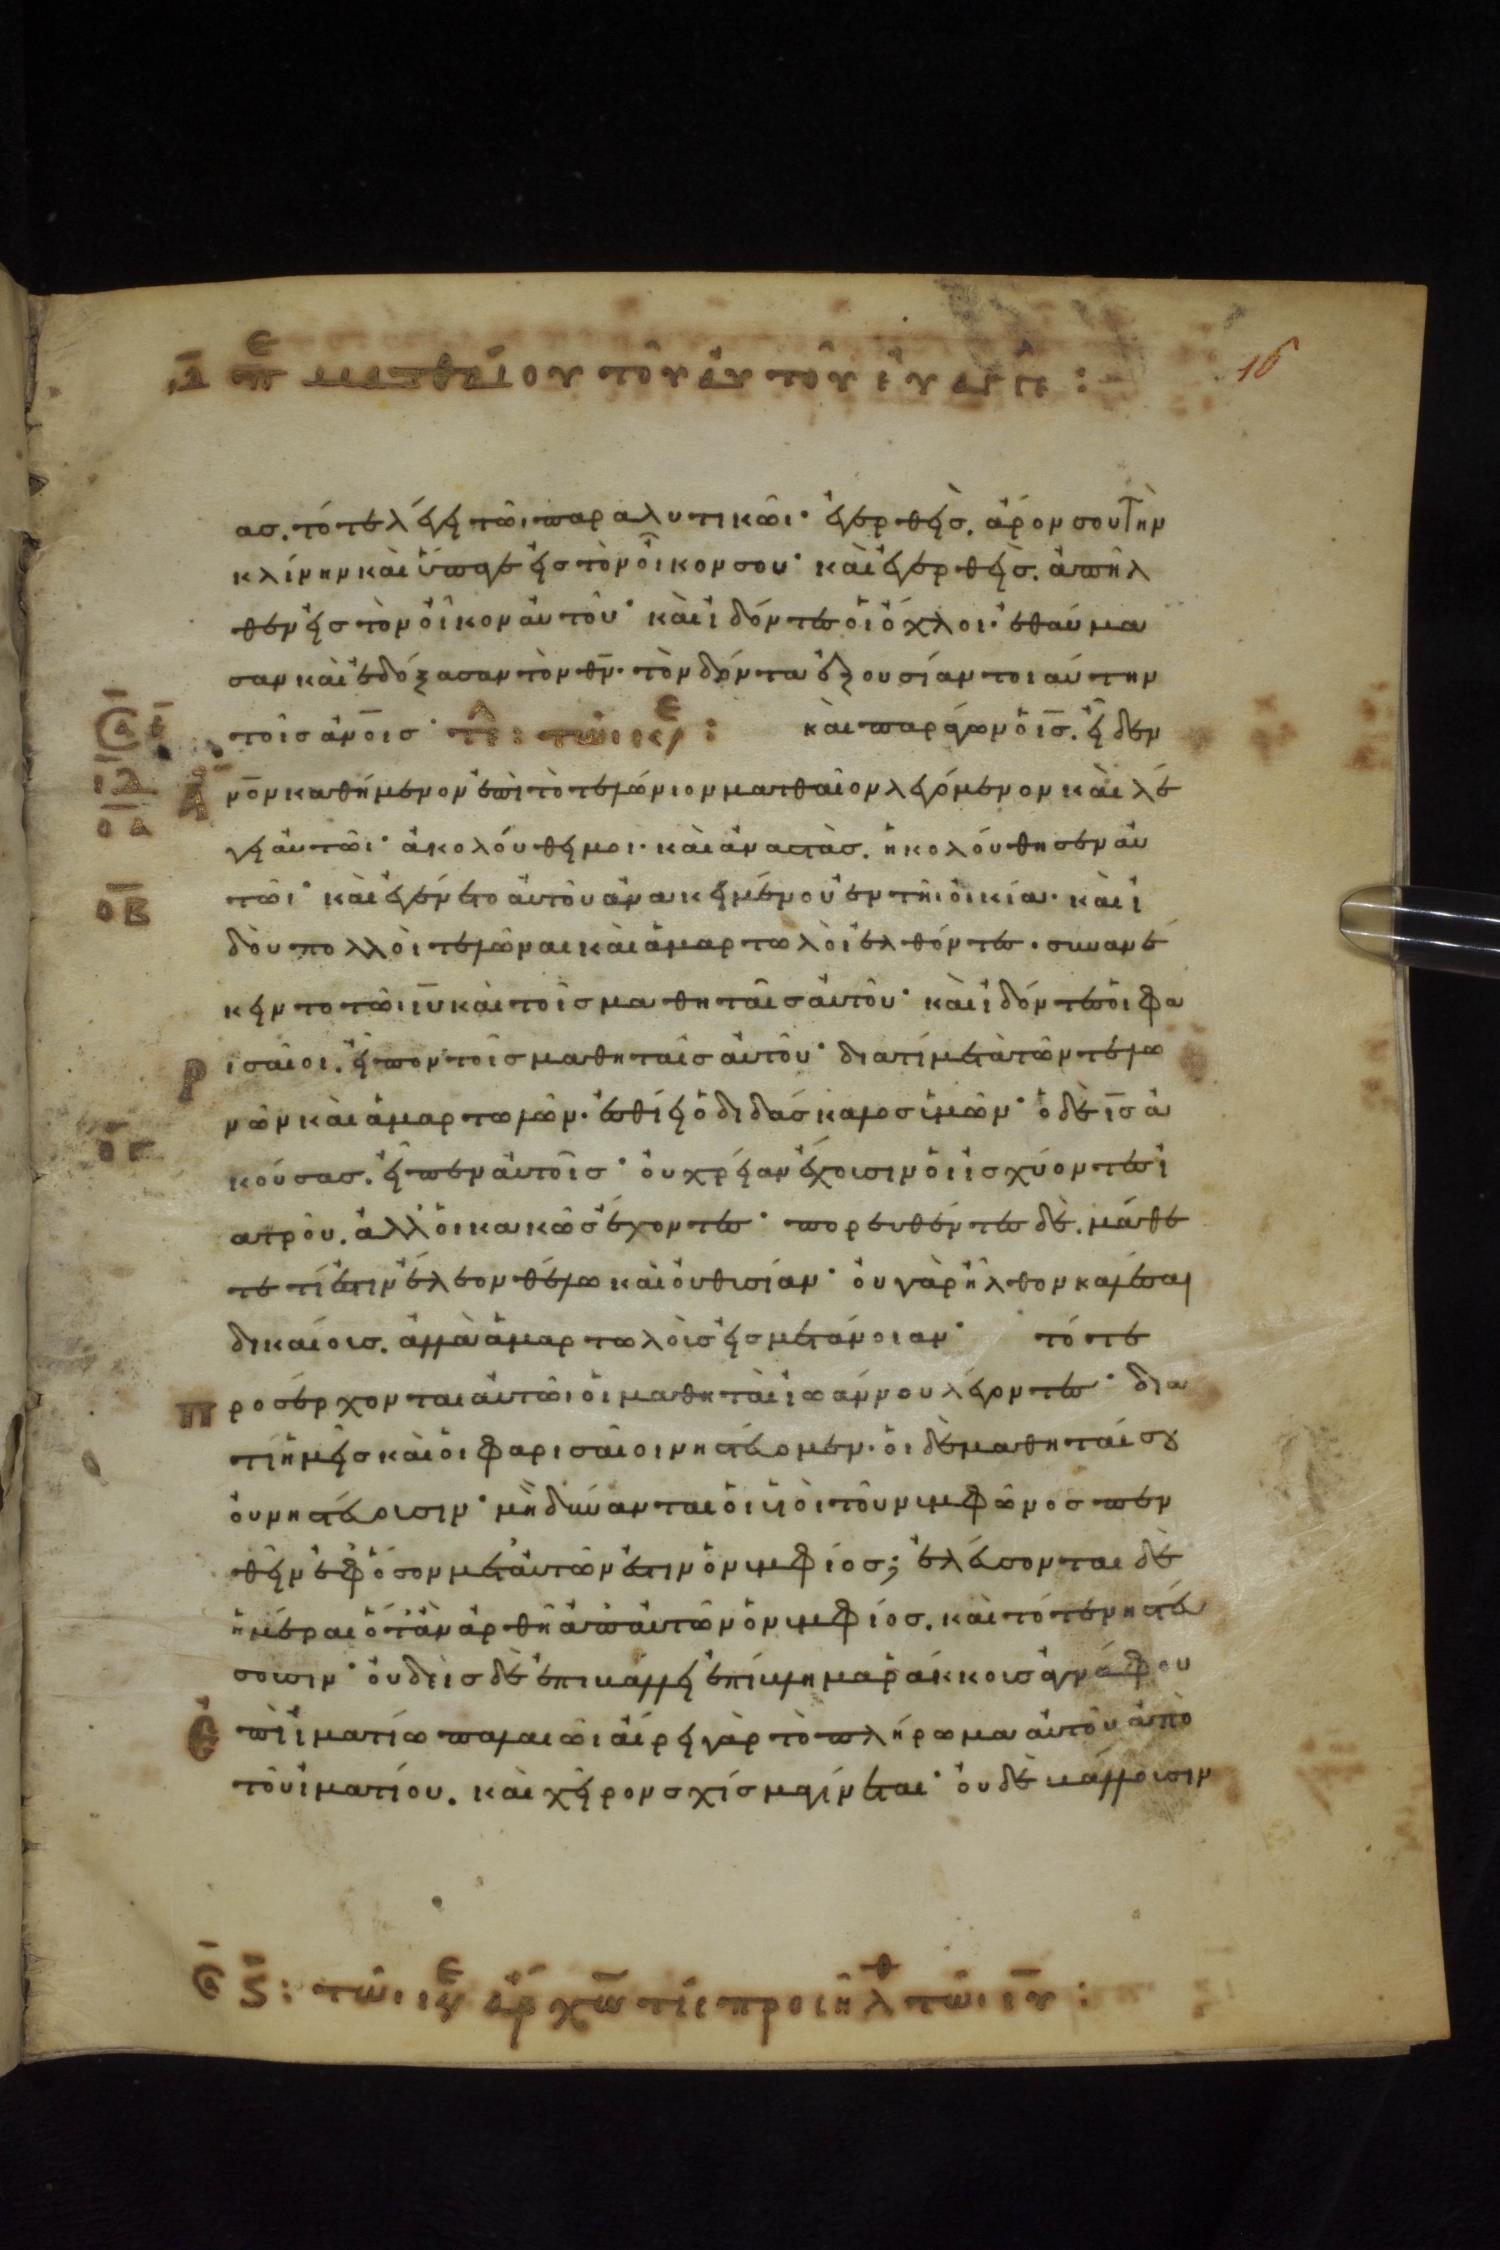 ιδ πε ματθαίου τοῦ αὐτοῦ εὐαγγ :
16
ασ. τότε λέγει τῶι παραλυτικῶι· ἐγερθεὶσ. ἆρόν σου τὴν
κλίνην καὶ ὕπαγε εἰσ τὸν οἶκον σου· καὶ ἐγερθεὶσ. ἀπῆλ
θεν εἰσ τὸν οἶκον αὐτοῦ· καὶ ἰδόντεσ οἱ ὄχλοι. ἐθαύμα
σαν καὶ ἐδόξασαν τὸν θν̄. τὸν δόντα ἐξουσίαν τοιαύτην
τοῖσ ἀνοισ· τε : τῶι κε : καὶ παράγων ὁ ισ̄. εἶδεν
Α νον καθήμενον ἐπὶ τὸ τελώνιον ματθαῖον λεγόμενον καὶ λέ
γει αὐτῶι· ἀκολούθει μοι. καὶ ἀναστὰσ. ἠκολούθησεν αὐ
τῶι· καὶ ἐγένετο αὐτοῦ ἀνακειμένου ἐν τῆι οἰκία. καὶ ἰ
δοὺ πολλοὶ τελῶναι καὶ ἁμαρτωλοὶ ἐλθόντεσ. συνανέ
κειντο τῶι ιῡ καὶ τοῖσ μαθηταῖσ αὐτοῦ· καὶ ἰδόντεσ οἱ φα
ρ ισαῖοι. εἶπον τοῖσ μαθηταῖσ αὐτοῦ· διατί μετὰ τῶν τελω
νῶν καὶ ἁμαρτωλῶν. ἐσθίει ὁ διδάσκαλοσ ὑμῶν· ὁ δὲ ισ̄ ἀ
κούσασ. εἶπεν αὐτοῖσ· οὐ χρείαν ἔχουσιν οἱ ἰσχύοντεσ ἰ
ατροῦ. ἀλλ' οἱ κακῶσ ἔχοντεσ· πορευθέντεσ δὲ. μάθε
τε τί ἐστιν ἔλεον θέλω καὶ οὐ θυσίαν· οὐ γὰρ ἦλθον καλέσαι
δικαίουσ. ἀλλὰ ἁμαρτωλοὺσ εἰσ μετάνοιαν· τότε
π ροσέρχονται αὐτῶι οἱ μαθηταὶ ἰωάννου λέγοντεσ· δια
τί ἡμεῖσ καὶ οἱ φαρισαῖοι νηστεύομεν. οἱ δὲ μαθηταί σου
οὐ νηστεύουσιν· μὴ δύνανται οἱ υἱοὶ τοῦ νυμφῶνοσ πεν
θεῖν ἐφ' ὅσον μετ' αὐτῶν ἐστιν ὁ νυμφίοσ; ἐλεύσονται δὲ
ἡμέραι ὅταν ἀρθῆ ἀπ' αὐτῶν ὁ νυμφίοσ. καὶ τότε νηστεύ
σουσιν· οὐδεὶσ δὲ ἐπιβάλλει ἐπίβλημα ῥάκκουσ ἀγνάφου
ἐ πὶ ἱματίω παλαιῶι αἴρει γὰρ τὸ πλήρωμα αὐτοῦ ἀπὸ
τοῦ ἱματίου. καὶ χεῖρον σχίσμα γίνεται· οὐδὲ βάλλουσιν
ιδ
οα
οβ
ογ
ϛ : τῶι κῶ ἄρχων τίσ προσῆλθ τῶι ιυ :